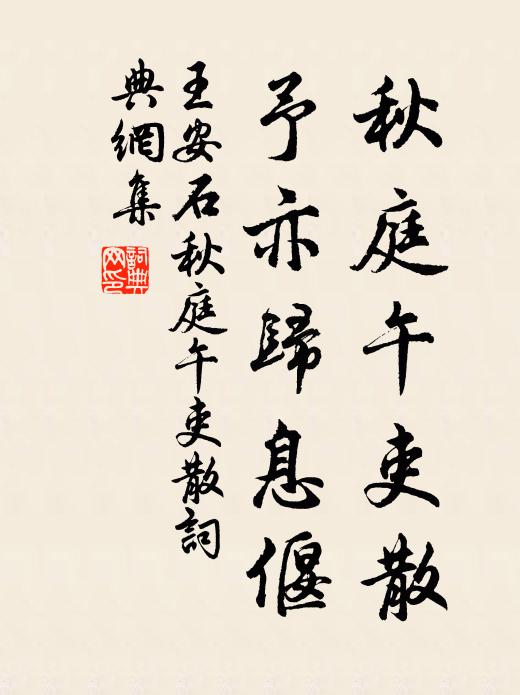 秋庭午吏散
予亦歸息偃
王安石秋庭午吏散詞
典網集
詞典
网印